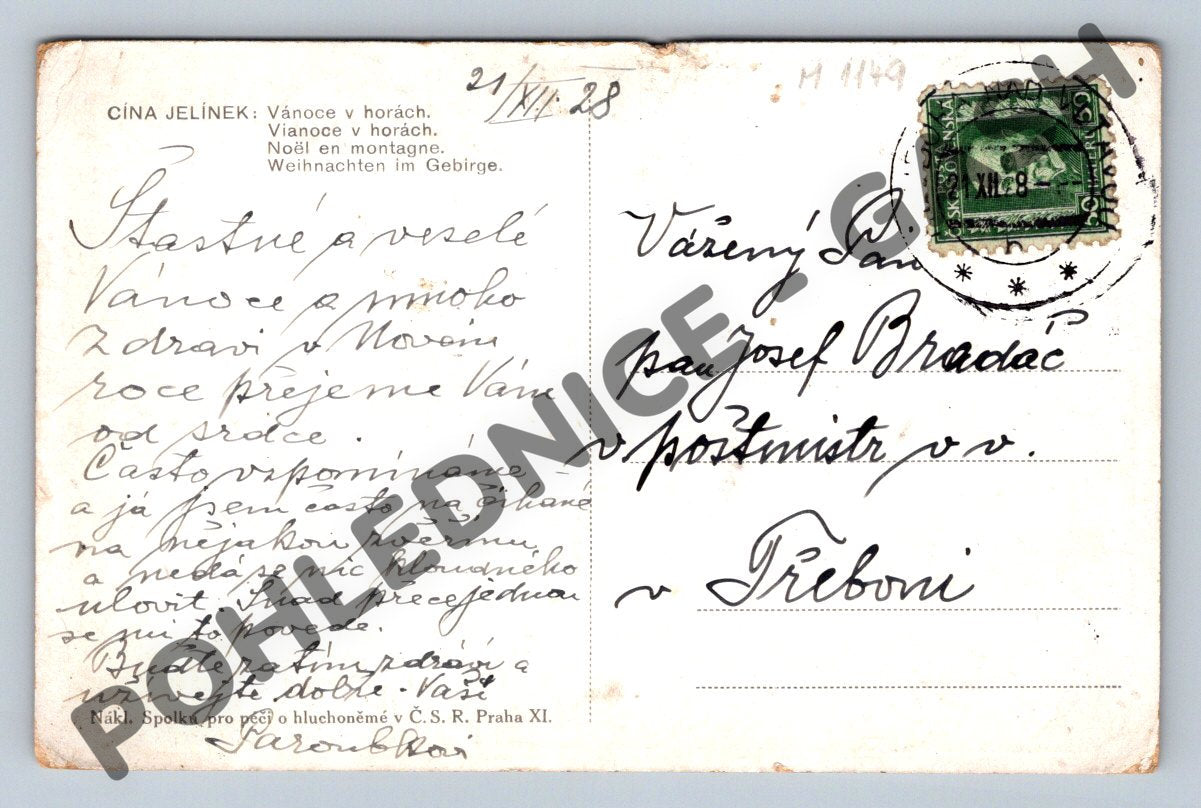 21/XII. 28
M 1149
CÍNA JELÍNEK: Vánoce v horách.
Vianoce v horách.
Noël en montagne.
Weihnachten im Gebirge.
Šťastné a veselé
Vánoce a mnoho
zdraví v Novém
roce přejeme Vám
od srdce.
Často vzpomínáme
a já jsem často na číhané
na nějakou zvěrinu
a nedá se nic kloudného
ulovit. Snad přece jednou
se mi to povede.
Buďte zatím zdrávi a
užívejte dobře. Vaši
Nákl. Spolku pro péči o hluchoněmé v Č. S. R. Praha XI.
Taroubkovi
ČESKOSLOVENSKÁ
50 HALERU 50
21 XII. 28
Vážený Pán
pan Josef Bradáč
poštmistr v v.
v Třeboni
POHLEDNICE - G H